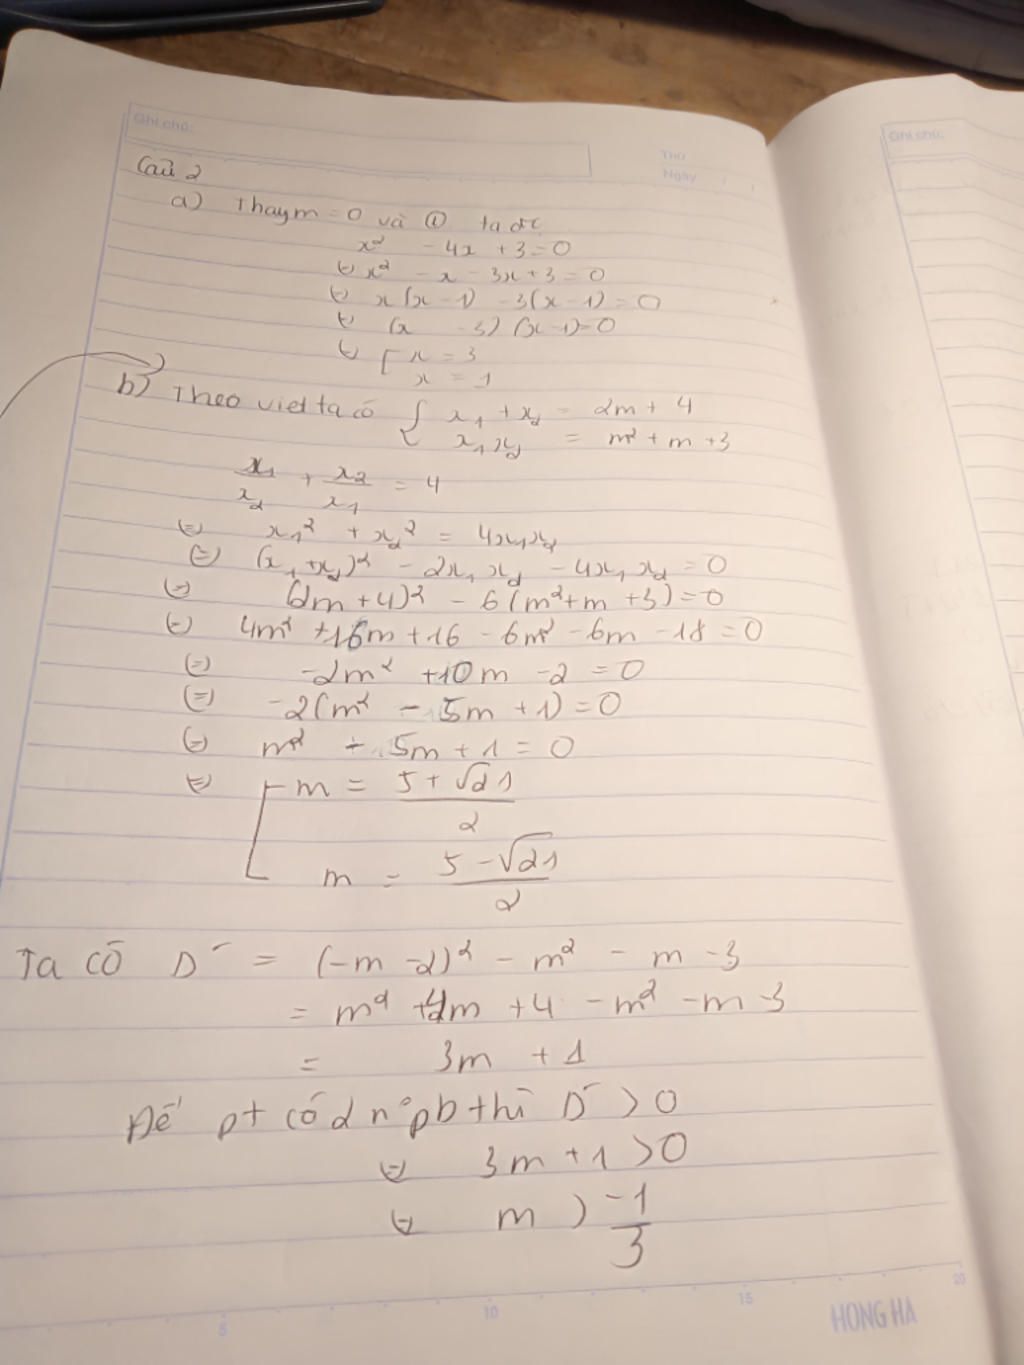 Ghi chú:
Thứ
Ngày / /
Ghi chú:
Câu 2
a) Thay m = 0 và ① ta đc
x² - 4x + 3 = 0
⇔ x² - x - 3x + 3 = 0
⇔ x(x - 1) - 3(x - 1) = 0
⇔ (x - 3)(x - 1) = 0
⇔ [ x = 3
x = 1
b) Theo viet ta có { x₁ + x₂ = 2m + 4
x₁x₂ = m² + m + 3
x₁/x₂ + x₂/x₁ = 4
⇔ x₁² + x₂² = 4x₁x₂
⇔ (x₁ + x₂)² - 2x₁x₂ - 4x₁x₂ = 0
⇔ (2m + 4)² - 6(m² + m + 3) = 0
⇔ 4m² + 16m + 16 - 6m² - 6m - 18 = 0
⇔ -2m² + 10m - 2 = 0
⇔ -2(m² - 5m + 1) = 0
⇔ m² - 5m + 1 = 0
⇔ [ m = (5 + √21)/2
m = (5 - √21)/2
Ta có D' = (-m - 2)² - m² - m - 3
= m² + 4m + 4 - m² - m - 3
= 3m + 1
Để pt có 2 n° pb thì D' > 0
⇔ 3m + 1 > 0
⇔ m > -1/3
5 10 15 20
HONG HA